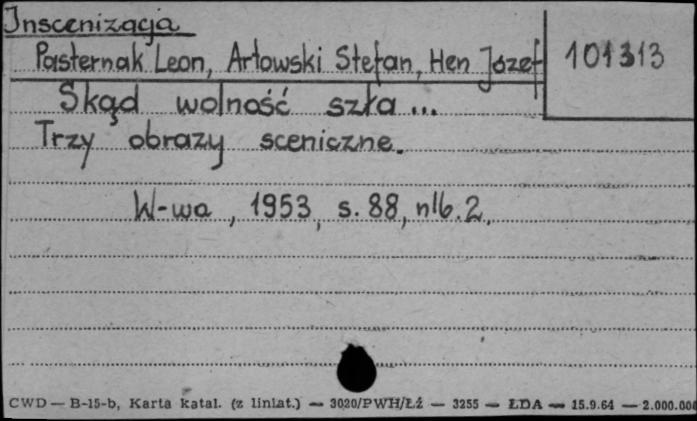 Inscenizacja
Pasternak Leon, Artowski Stefan, Hen Józef
101313
Skąd wolność szła...
Trzy obrazy sceniczne.
W-wa, 1953, s. 88, nlb. 2.
CWD — B-15-b, Karta katal. (z liniat.) — 3020/PWH/Łź — 3255 — ŁDA — 15.9.64 — 2.000.000